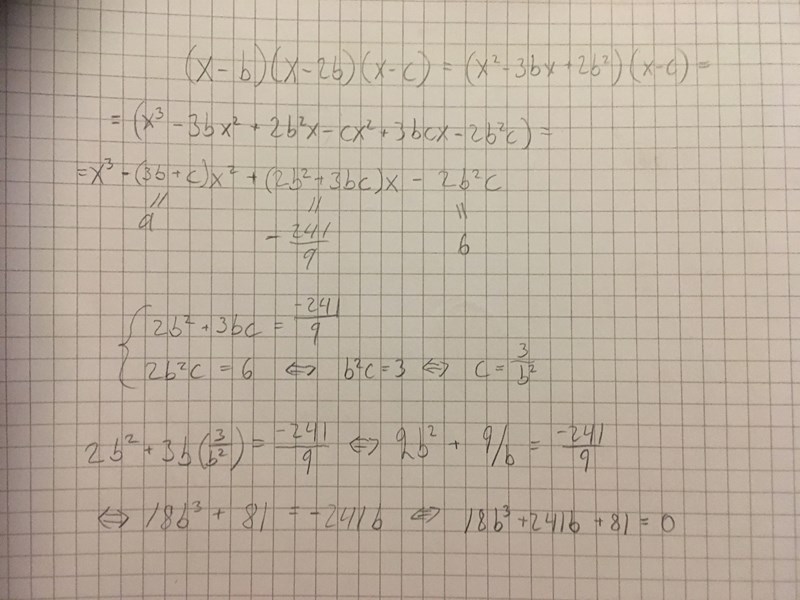 (x-b)(x-2b)(x-c) = (x²-3bx+2b²)(x-c) =
= (x³ - 3bx² + 2b²x - cx² + 3bcx - 2b²c) =
= x³ - (3b+c)x² + (2b²+3bc)x - 2b²c
a = -241/9 = 6
{ 2b² + 3bc = -241/9
2b²c = 6 ⇔ b²c = 3 ⇔ c = 3/b²
2b² + 3b(3/b²) = -241/9 ⇔ 2b² + 9/b = -241/9
⇔ 18b³ + 81 = -241b ⇔ 18b³ + 241b + 81 = 0